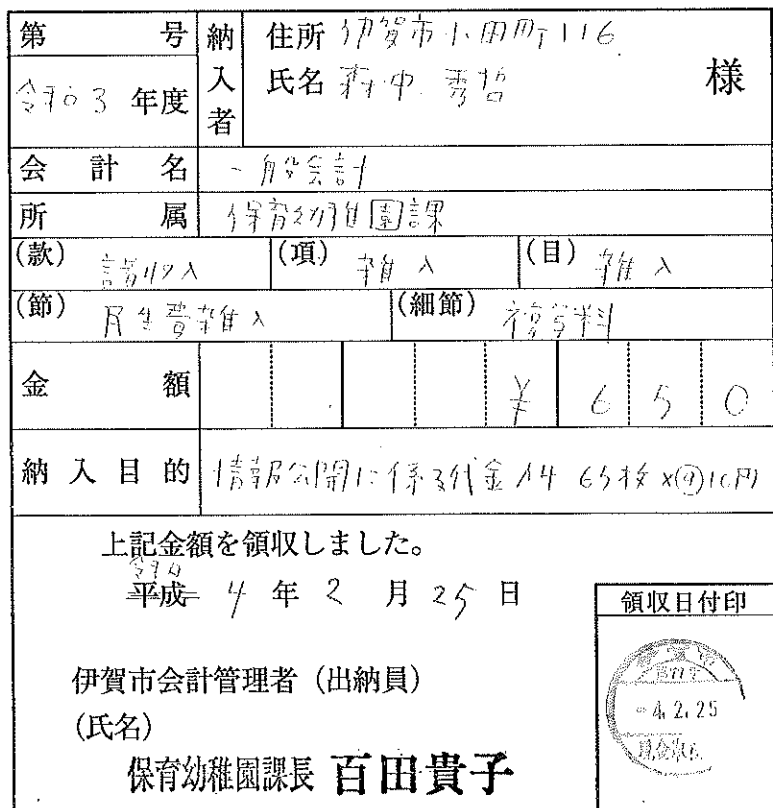 第 号
納入者
住所 伊賀市小田町116
氏名 森中 秀哲 様
令和3 年度
会計名 一般会計
所属 保育幼稚園課
(款) 諸収入 (項) 雑入 (目) 雑入
(節) 民生費雑入 (細節) 複写料
金額 ¥650
納入目的 情報公開に係る代金 A4 65枚×@10円
上記金額を領収しました。
令和
平成 4年2月25日
領収日付印
伊賀市会計管理者(出納員)
4.2.25
(氏名)
保育幼稚園課長 百田貴子